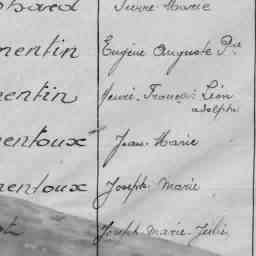 Pierre Marie
mentin Eugène Auguste Pre
mentin Henri-François Léon
adolphe
mentoux Jean-Marie
mentoux Joseph-Marie
Joseph-Marie-Julien